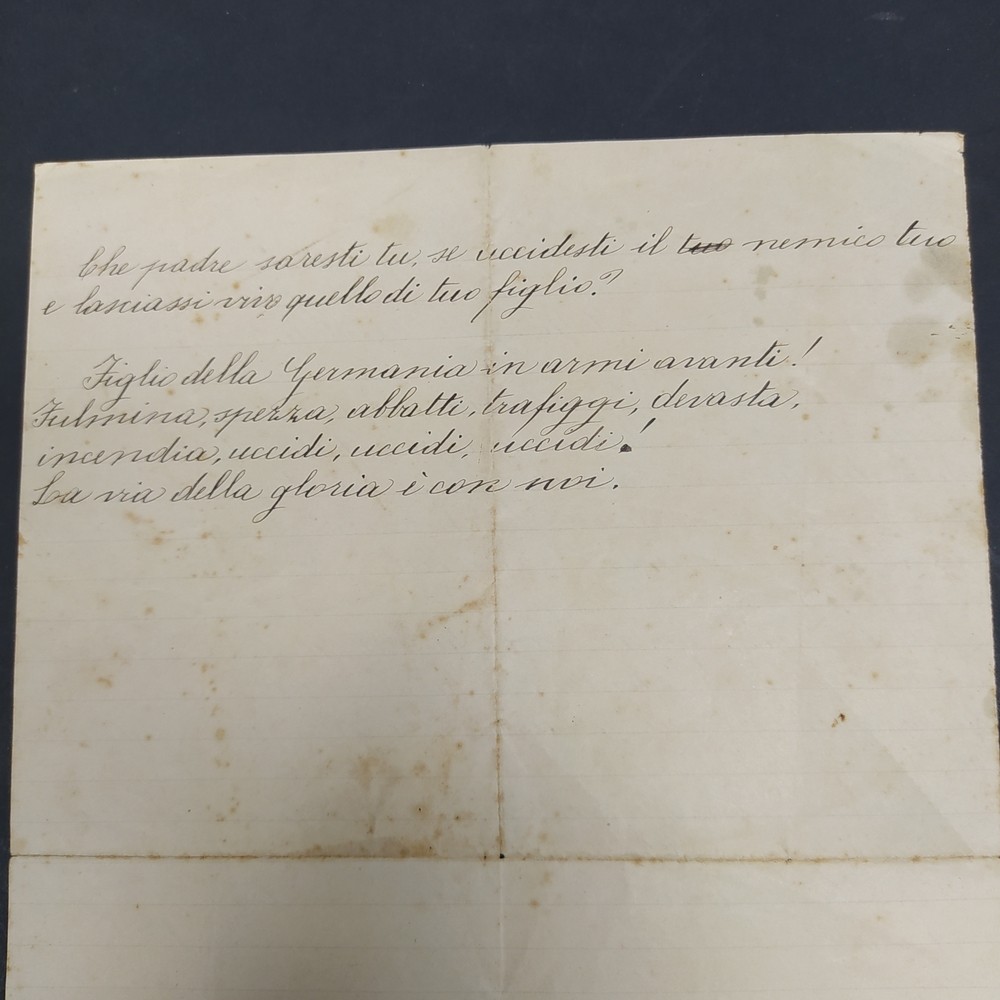 Che padre saresti tu, se uccidesti il tuo nemico tuo
e lasciassi vivo quello di tuo figlio?
Figlio della Germania in armi avanti!
Fulmina, spezza, abbatti, trafiggi, devasta,
incendia, uccidi, uccidi, uccidi!
La via della gloria è con noi.